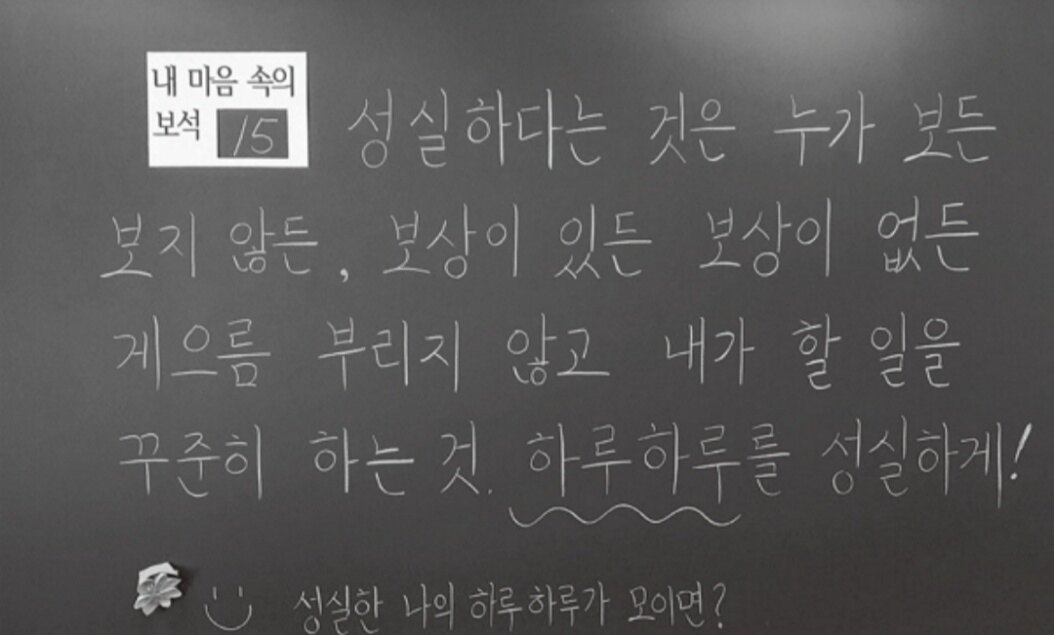 내 마음 속의
보석 15
성실하다는 것은 누가 보든
보지 않든, 보상이 있든 보상이 없든
게으름 부리지 않고 내가 할 일을
꾸준히 하는 것. 하루하루를 성실하게!
성실한 나의 하루하루가 모이면?